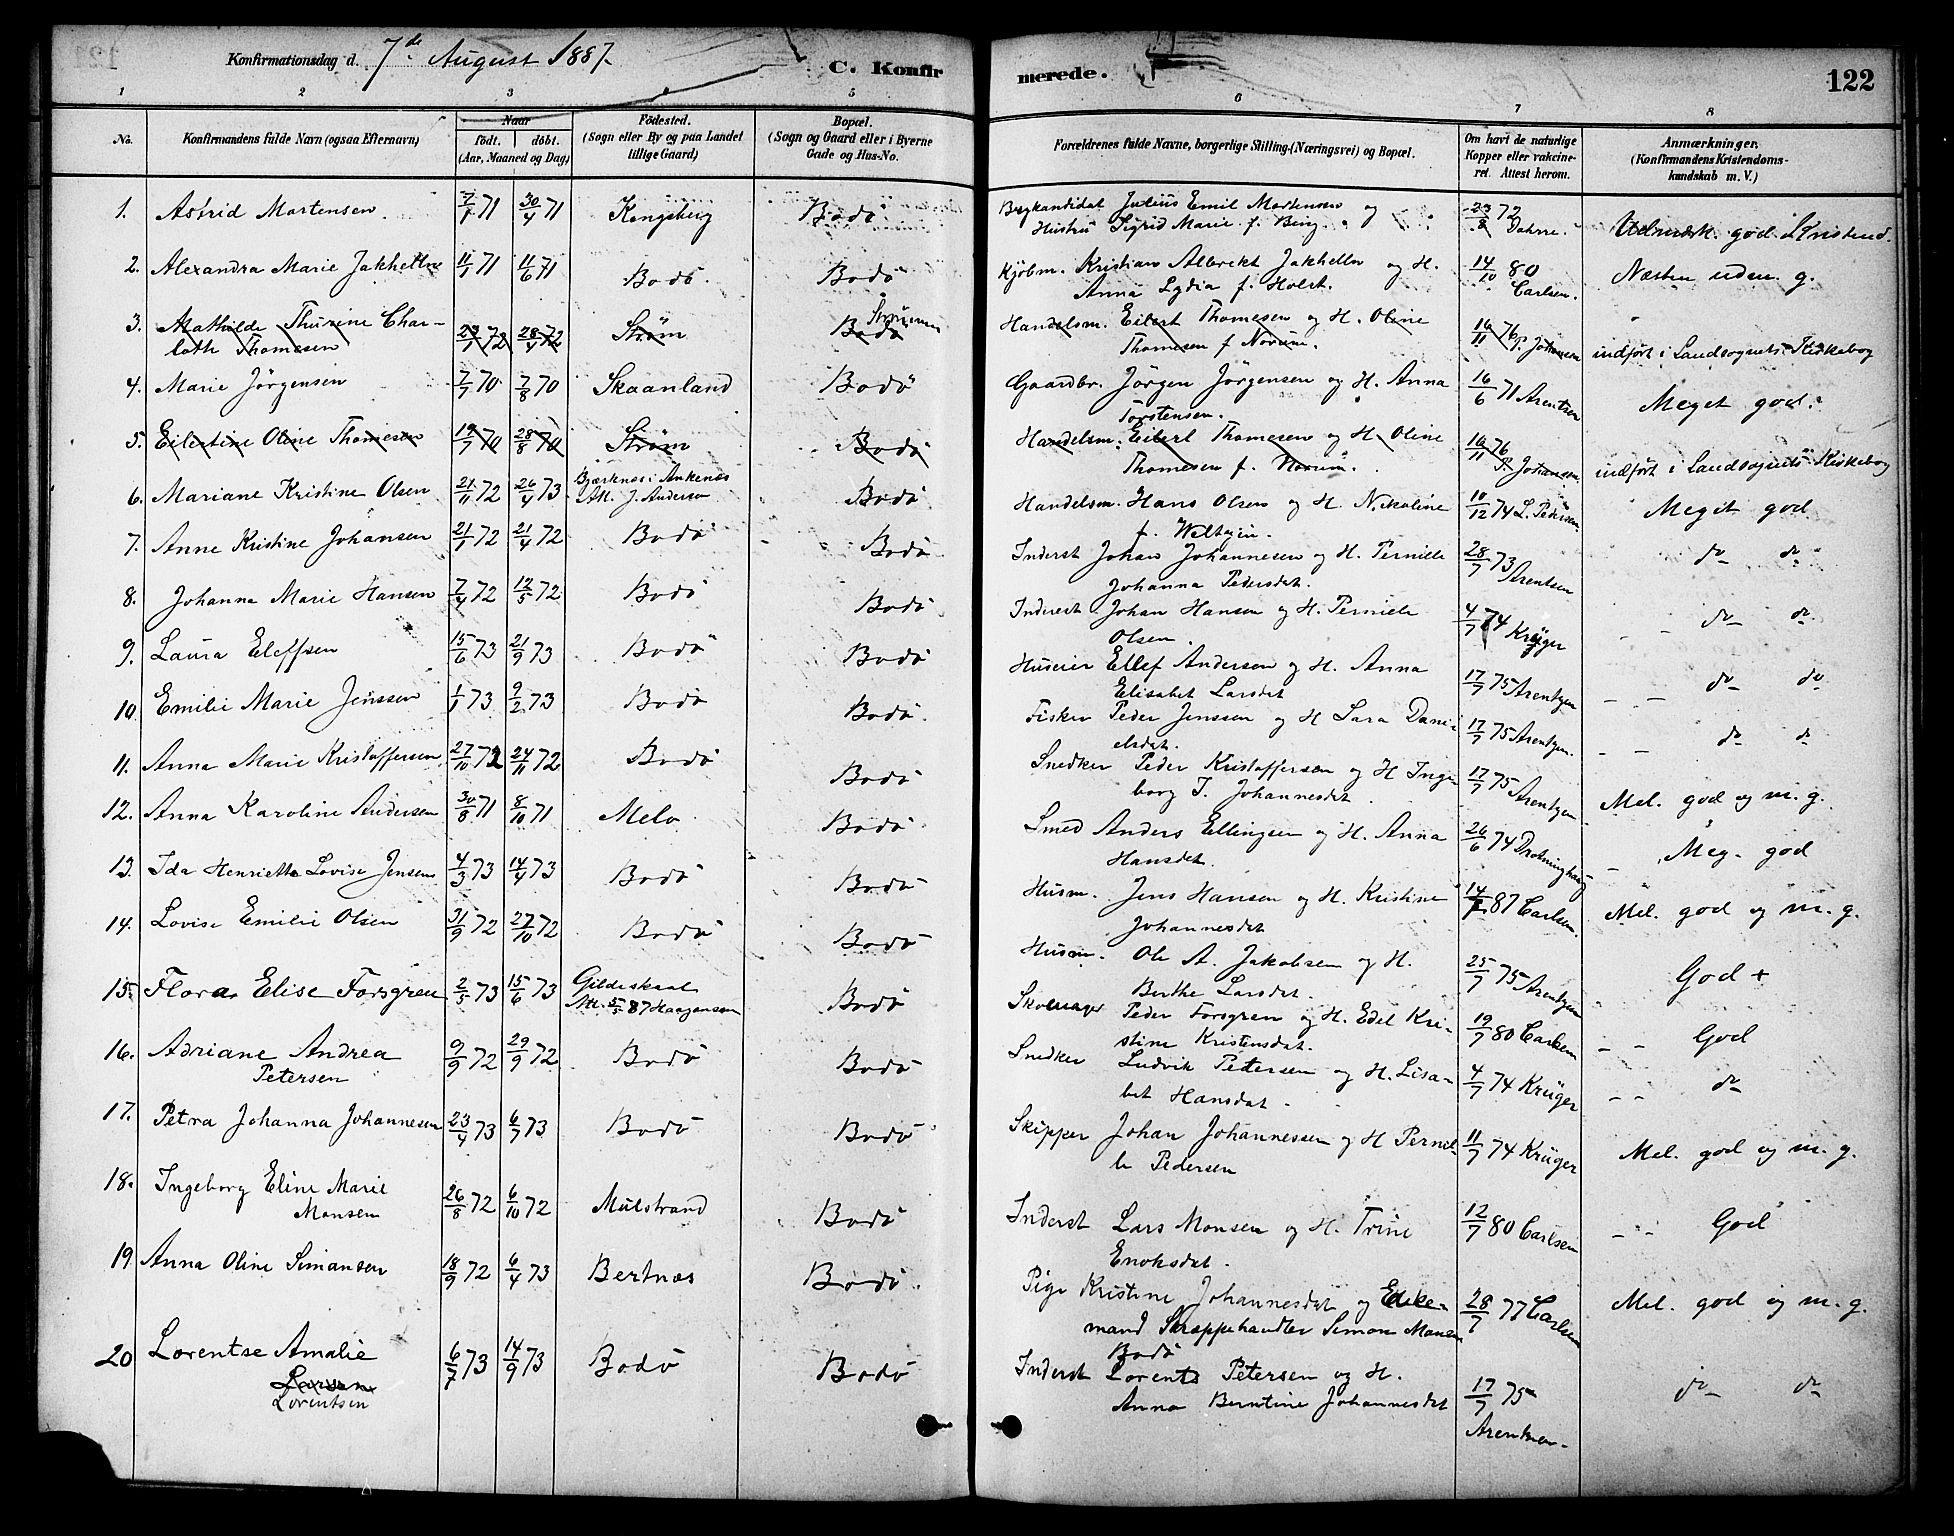 Konfirmationsdag d. 7de August 1887.
C. Konfirmerede.
122
1 2 3 4 5 6 7 8
No.
Konfirmandens fulde Navn (ogsaa Efternavn)
Naar
födt. döbt.
(Aar, Maaned og Dag)
Födested.
(Sogn eller By og paa Landet
tillige Gaard)
Bopæl.
(Sogn og Gaard eller i Byerne
Gade og Hus-No.
Forældrenes fulde Navne, borgerlige Stilling (Næringsvei) og Bopæl.
Om havt de naturlige
Kopper eller vakcine-
ret. Attest herom.
Anmærkninger.
(Konfirmandens Kristendoms-
kundskab m. V.)
1. Astrid Mortensen 7/1 71 30/4 71 Kongsberg Bodö Bergkandidat Julius Emil Mortensen og 23/8 72
Hustru Sigrid Marie f. Bing. Udmærk. god Kristend.
2. Alexandra Marie Jakhelln 11/1 71 11/6 71 Bodö Bodö Kjöbm. Kristian Albrekt Jakhelln og H. 14/10 80 Næsten udm. g.
Anna Lydia f. Holst. Carlsen.
3. Mathilde Thurine Char- Strömmen Handelsm. Eilert Thomesen og H. Oline
loth Thomesen 29/1 72 28/4 72 Ström Bodö Thomesen f Norum. 16/11 76 P. Johansen indfört i Landsognets Kirkebog
4. Marie Jörgensen 7/7 70 7/8 70 Skaanland Bodö Gaardbr. Jörgen Jörgensen og H. Anna 16/6 71 Arentzen Meget god.
Torstensen.
5. Eilertine Oline Thomesen 19/7 70 28/8 70 Ström Bodö Handelsm. Eilert Thomesen og H. Oline 16/11 76
Thomesen f. Norum. P. Johansen indfört i Landsognets Kirkebog
6. Mariane Kristine Olsen 21/11 72 26/4 73 Bjerknes i Ankenes Bodö Handelsm. Hans Olsen og H. Nikoline 10/12 74 L. Pedersen Meget god
Att. J. Andersen
7. Anne Kristine Johansen 21/1 72 21/4 72 Bodö Bodö Inderst Johan Johannesen og H. Pernille 28/7 73 Arentsen do do
Johanna Pedersdat.
8. Johanna Marie Hansen 7/4 72 12/5 72 Bodö Bodö Inderst Johan Hansen og H. Pernille 4/7 74 Krüger do do
Olsen.
9. Laura Eleffsen 15/6 73 21/9 73 Bodö Bodö Huseier Ellef Andersen og H. Anna 17/7 75 Arentzen do do
Elisabet Larsdat
10. Emilie Marie Jenssen 1/1 73 9/2 73 Bodö Bodö. Fisker Peder Jenssen og H Sara Dani- 17/7 75 Arentzen do do
elsdat.
11. Anna Marie Kristoffersen 27/10 72 24/11 72 Bodö Bodö Snedker Peder Kristoffersen og H Inge- 17/7 75 Arentzen Mel. god og m. g.
borg J. Johannesdat.
12. Anna Karoline Andersen 30/8 71 8/10 71 Melö Bodö Smed Anders Ellingsen og H. Anna 26/6 74 Dronninghaug Meg. god
Hansdat.
13. Ida Henriette Lovise Jensen 4/3 73 14/4 73 Bodö Bodö Husm. Jens Hansen og H. Kristine 14/7 87 Carlsen. Mel. god og m. g.
Johannesdat
14. Lovise Emilie Olsen 31/9 72 27/10 72 Bodö Bodö Husm. Ole A. Jakobsen og H. 25/7 75 Arentzen God +
Berthe Larsdat.
15. Flora Elise Forsgren 2/5 73 15/6 73 Gildeskaal Bodö Skomager Peder Forsgren og H. Edel Kri- 19/7 80 Carlsen God
Att. 5/5 87 Haagensen stine Kristensdat.
16. Adriane Andrea 9/9 72 29/9 72 Bodö Bodö Snedker Ludvik Petersen og H. Lisa- 4/7 74 Krüger do
Petersen bet Hansdat
17. Petra Johanna Johannesen 23/4 73 6/7 73 Bodö Bodö Skipper Johan Johannessen og H Pernil- 11/7 74 Krüger Mel. god og m. g.
le Pedersen
18. Ingeborg Eline Marie 26/8 72 6/10 72 Mulstrand Bodö Inderst Lars Monsen og H. Trine 12/7 80 Carlsen God
Monsen Enoksdat.
19. Anna Oline Simansen 18/9 72 6/4 73 Bertnes Bodö. Pige Kristine Johannesdat og Enke- 28/7 77 Carlsen Mel. god og m. g.
mand Skræppehandler Simon Monsen
Bodö
20 Lorentse Amalie 6/7 73 14/9 73 Bodö Bodö Inderst Lorents Petersen og H. 17/7 75 do do
Larsen Anna Berntine Johannesdat Arentzen
Lorentsen